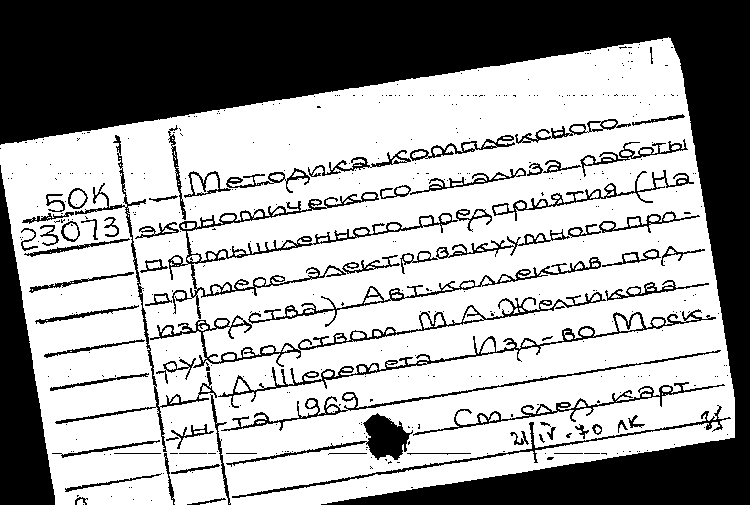 1
Методика комплексного
50К
экономического анализа работы
23073
промышленного предприятия (На
примере электровакуумного про-
изводства). Авт. коллектив под
руководством М.А. Желтикова
и А.Д. Шеремета. Изд-во Моск.
ун-та, 1969.
См. след. карт
21/IV-70 ЛК